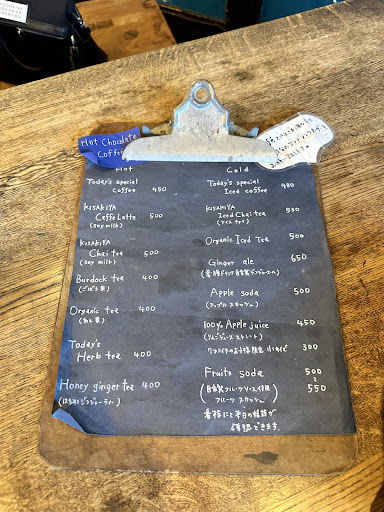 Hot Chocolate
Coffee
Hot
Today's special
Coffee 450
KISAKIYA
Caffe Latte 500
(soy milk)
KISAKIYA
Chai tea 500
(soy milk)
Burdock tea 400
(ごぼう茶)
Organic tea 400
Today's
Herb tea 400
Honey ginger tea 400
(はちみつジンジャーティー)
Cold
Today's special
Iced coffee 480
KISAKIYA
Iced Chai tea 550
(アイスチャイ)
Organic Iced Tea 500
Ginger ale 650
Apple soda 500
(アップルスカッシュ)
100% Apple juice 450
(りんごジュースストレート)
300
Fruits soda 500
(自家製フルーツソース使用 550
フルーツスカッシュ)
看板にて本日の種類が
確認できます。